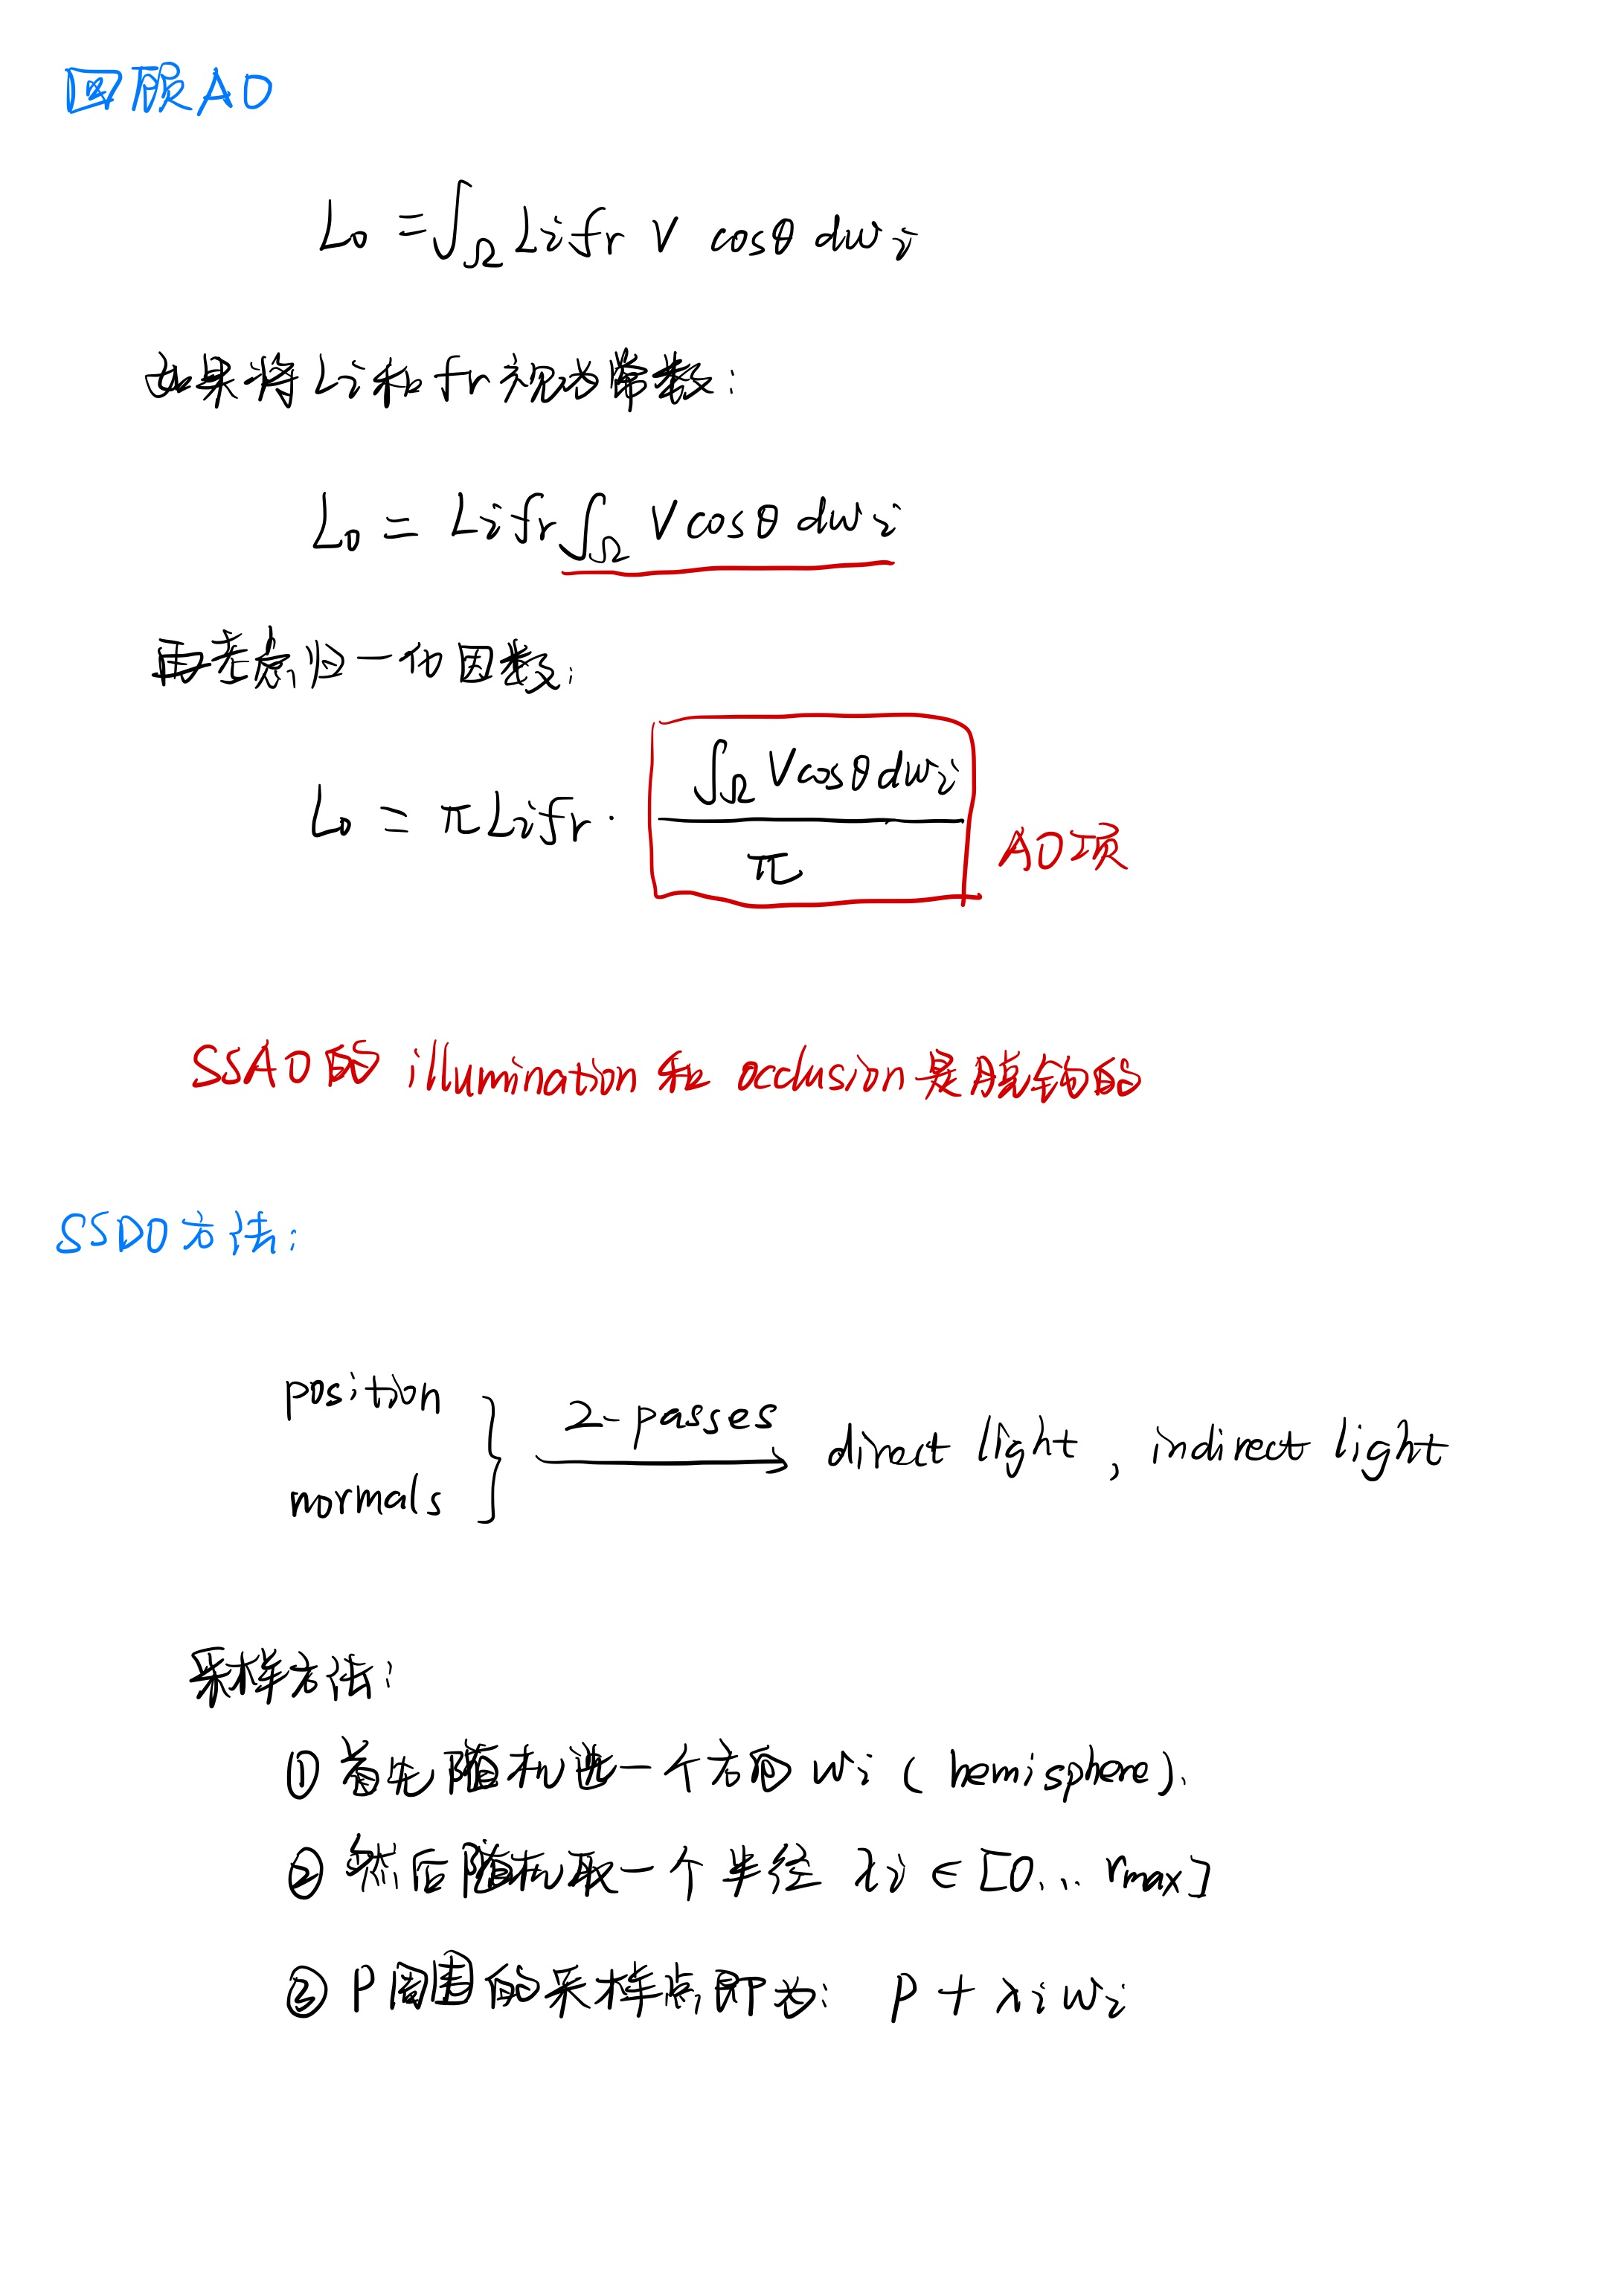 回顾AO
L₀ = ∫_Ω Li fr V cosθ dωi
如果将Li和fr视为常数:
L₀ = Li fr ∫_Ω V cosθ dωi
再考虑归一化因数:
L₀ = πLi fr · ∫_Ω V cosθ dωi / π AO项
SSAO的 illumination 和 occlusion是脱钩的
SSDO方法:
position
normals } 2-passes → direct light, indirect light
采样方法:
① 首先随机选一个方向 ωi (hemisphere).
② 然后随机取一个半径 λi ∈ [0... rmax]
③ P周围的采样点即为: P + λiωi